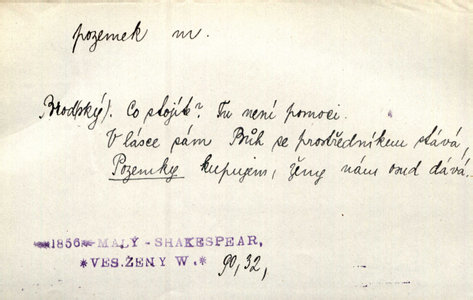 pozemek m.
Brodský). Co stojíb? Tu není pomoci.
V lásce sám Bůh se prostředníkem stává,
Pozemky kupujem, ženy nám osud dává.
*1856* MALÝ-SHAKESPEAR,
*VES.ŽENY W.* 90,32,